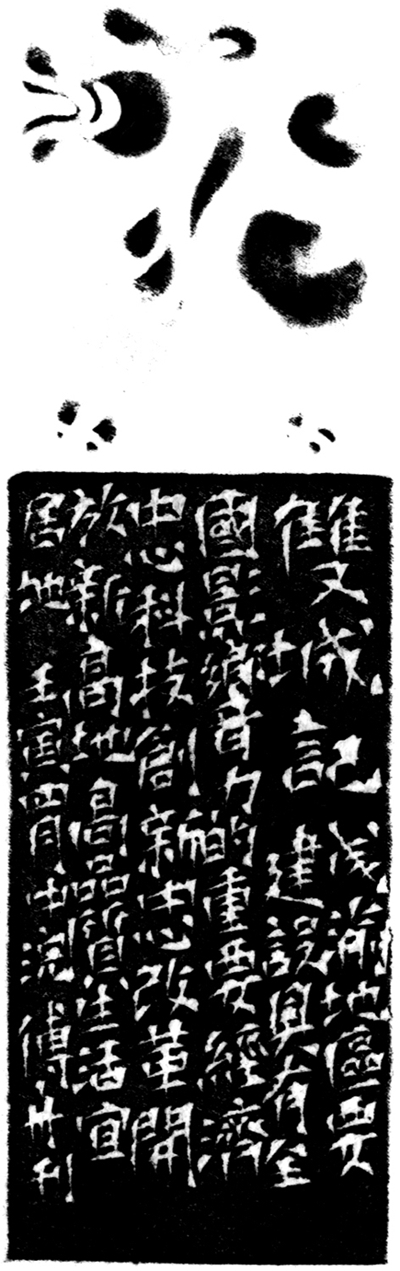 雙城記
成渝地區要
建設具有全
國影響力的重要經濟
中心科技創新中心改革開
放新高地高品質生活宜
居地 壬寅四月中浣傅竹利